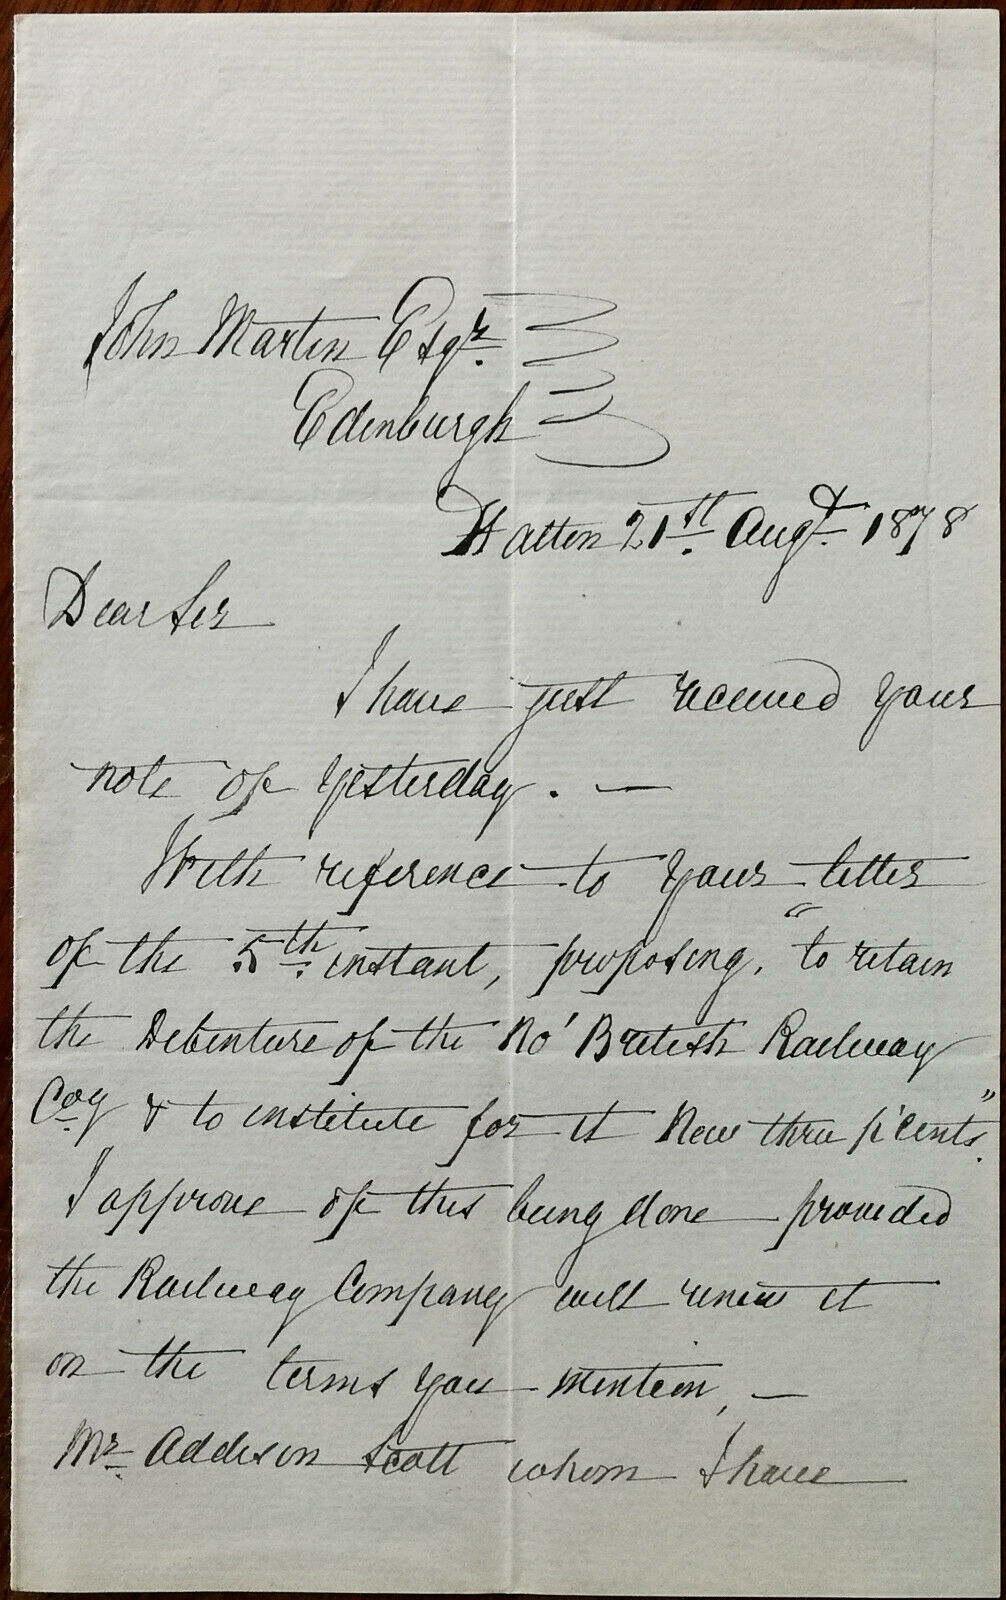 John Martin Esqr.
Edinburgh
Hatton 21st. Augt. 1878
Dear Sir
I have just received your
note of yesterday. —
With reference to your letter
of the 5th. instant, proposing, "to retain
the Debenture of the No' British Railway
Coy & to institute for it New three p'Cents".
I approve of this being done provided
the Railway Company will renew it
on the terms you mention, —
Mr. Addison Scott whom I have